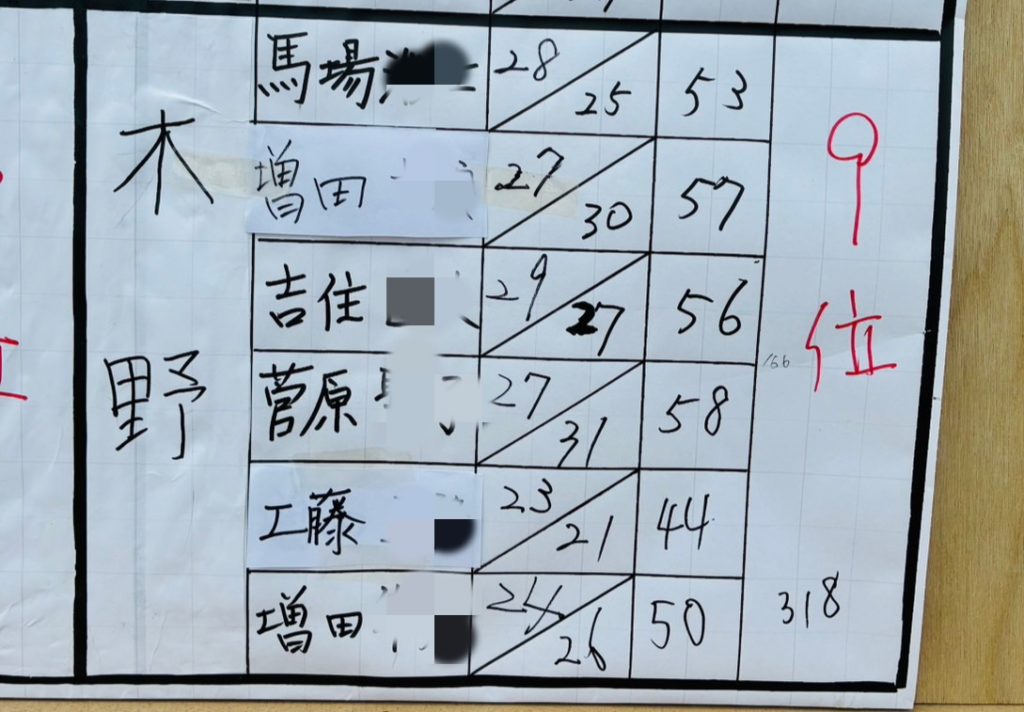 木野
馬場 28 25 53
増田 27 30 57
吉住 29 27 56
菅原 27 31 58
工藤 23 21 44
増田 24 26 50
9位
166
318